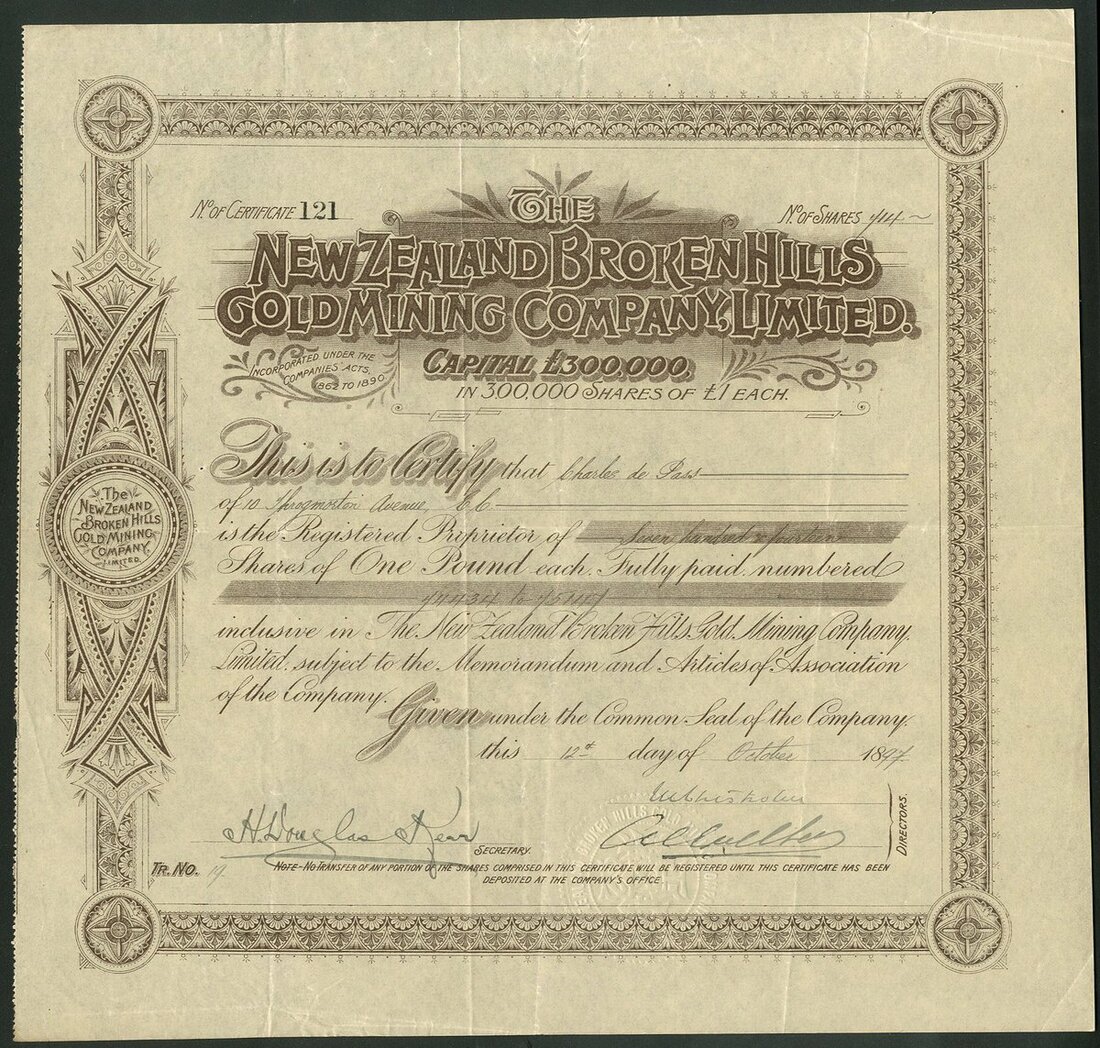 No OF CERTIFICATE 121
No OF SHARES 714
THE
NEW ZEALAND BROKEN HILLS
GOLD MINING COMPANY, LIMITED.
INCORPORATED UNDER THE
COMPANIES' ACTS,
1862 TO 1890
CAPITAL, £300,000,
IN 300,000 SHARES OF £1 EACH.
This is to Certify that Charles de Pass
of 10 Throgmorton Avenue, E.C.
is the Registered Priprietor of Seven hundred & fourteen
Shares of One Pound each, Fully paid, numbered
74434 to 75147
inclusive in The New Zealand Broken Hills Gold Mining Company,
Limited, subject to the Memorandum and Articles of Association
of the Company.
Given under the Common Seal of the Company,
this 12th day of October 1897
The
NEW ZEALAND
BROKEN HILLS
GOLD MINING
COMPANY,
LIMITED.
H. Douglas
SECRETARY.
DIRECTORS.
TR. NO.
NOTE - NO TRANSFER OF ANY PORTION OF THE SHARES COMPRISED IN THIS CERTIFICATE WILL BE REGISTERED UNTIL THIS CERTIFICATE HAS BEEN
DEPOSITED AT THE COMPANY'S OFFICE.